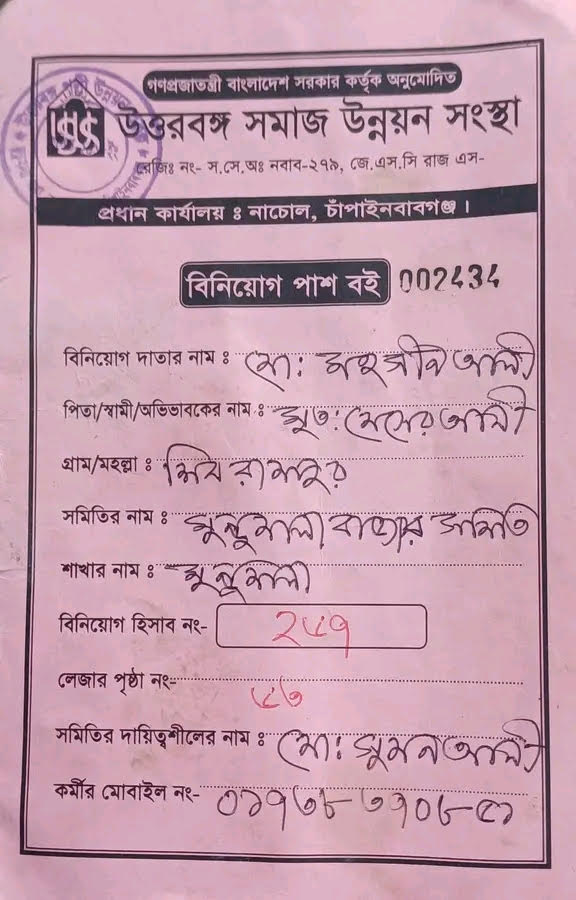 গণপ্রজাতন্ত্রী বাংলাদেশ সরকার কর্তৃক অনুমোদিত
উত্তরবঙ্গ সমাজ উন্নয়ন সংস্থা
রেজিঃ নং- স.সে.অঃ নবাব-২৭৯, জে.এস.সি রাজ এস-
প্রধান কার্যালয় ঃ নাচোল, চাঁপাইনবাবগঞ্জ।
বিনিয়োগ পাশ বই 002434
বিনিয়োগ দাতার নাম ঃ মো: মহসীন আলী
পিতা/স্বামী/অভিভাবকের নাম ঃ মৃত: মেসের আলী
গ্রাম/মহল্লা ঃ শিবরামপুর
সমিতির নাম ঃ মুন্ডুমালা বাজার সমিতি
শাখার নাম ঃ মুন্ডুমালা
বিনিয়োগ হিসাব নং- ২৮৭
লেজার পৃষ্ঠা নং-
সমিতির দায়িত্বশীলের নাম ঃ মো: সুমন আলী
কর্মীর মোবাইল নং-